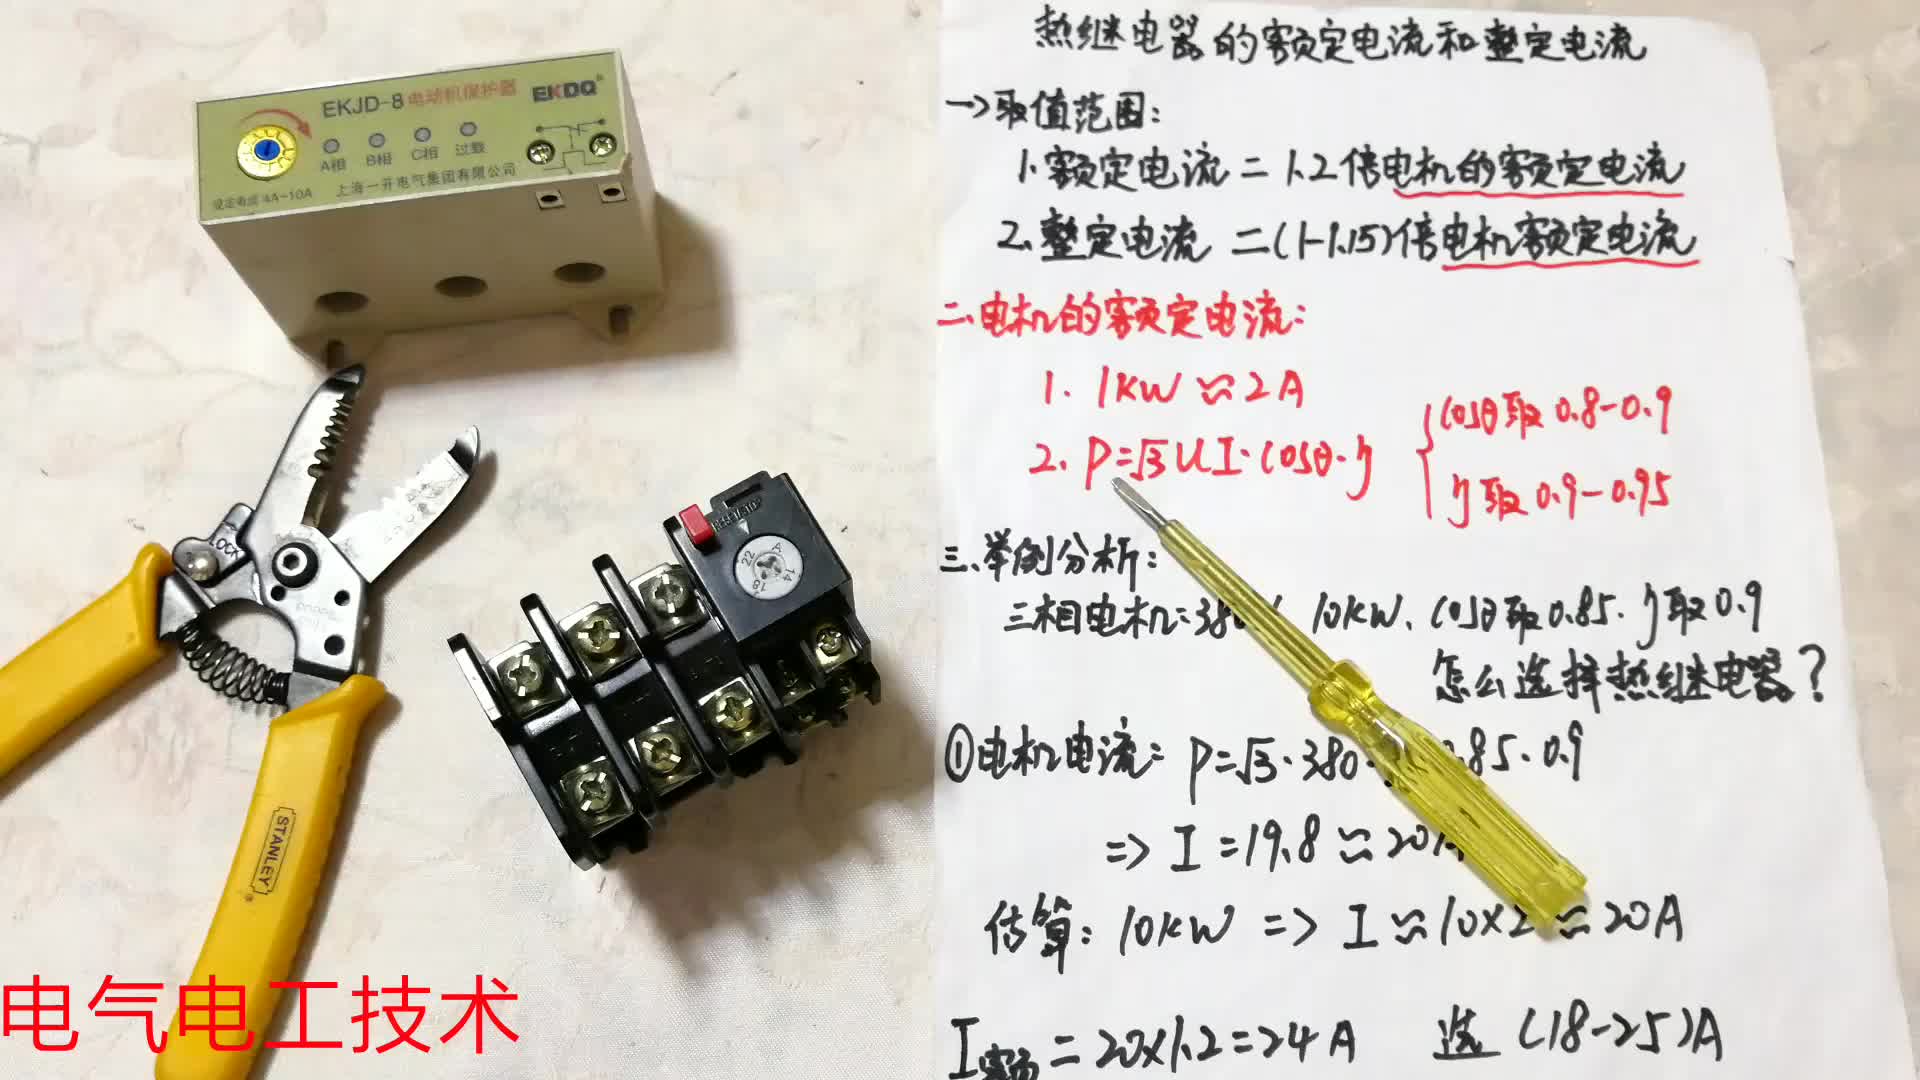 EKJD-8 电动机保护器 EKDQ
A相 B相 C相 过载
设定电流 4A~10A 上海一开电气集团有限公司
LOCK
STANLEY
22 A 14 18
电气电工技术
热继电器的额定电流和整定电流
一>取值范围:
1.额定电流=1.2倍电机的额定电流
2.整定电流=(1-1.15)倍电机额定电流
二.电机的额定电流:
1. 1KW≈2A
2. P=√3UI·cosθ·η
cosθ取0.8-0.9
η取0.9-0.95
三.举例分析:
三相电机:380 10KW、cosθ取0.85.η取0.9
怎么选择热继电器?
①电机电流: P=√3·380· 85·0.9
=> I=19.8≈20A
估算: 10KW => I≈10×2≈20A
I额=20×1.2=24A 选(18-25)A